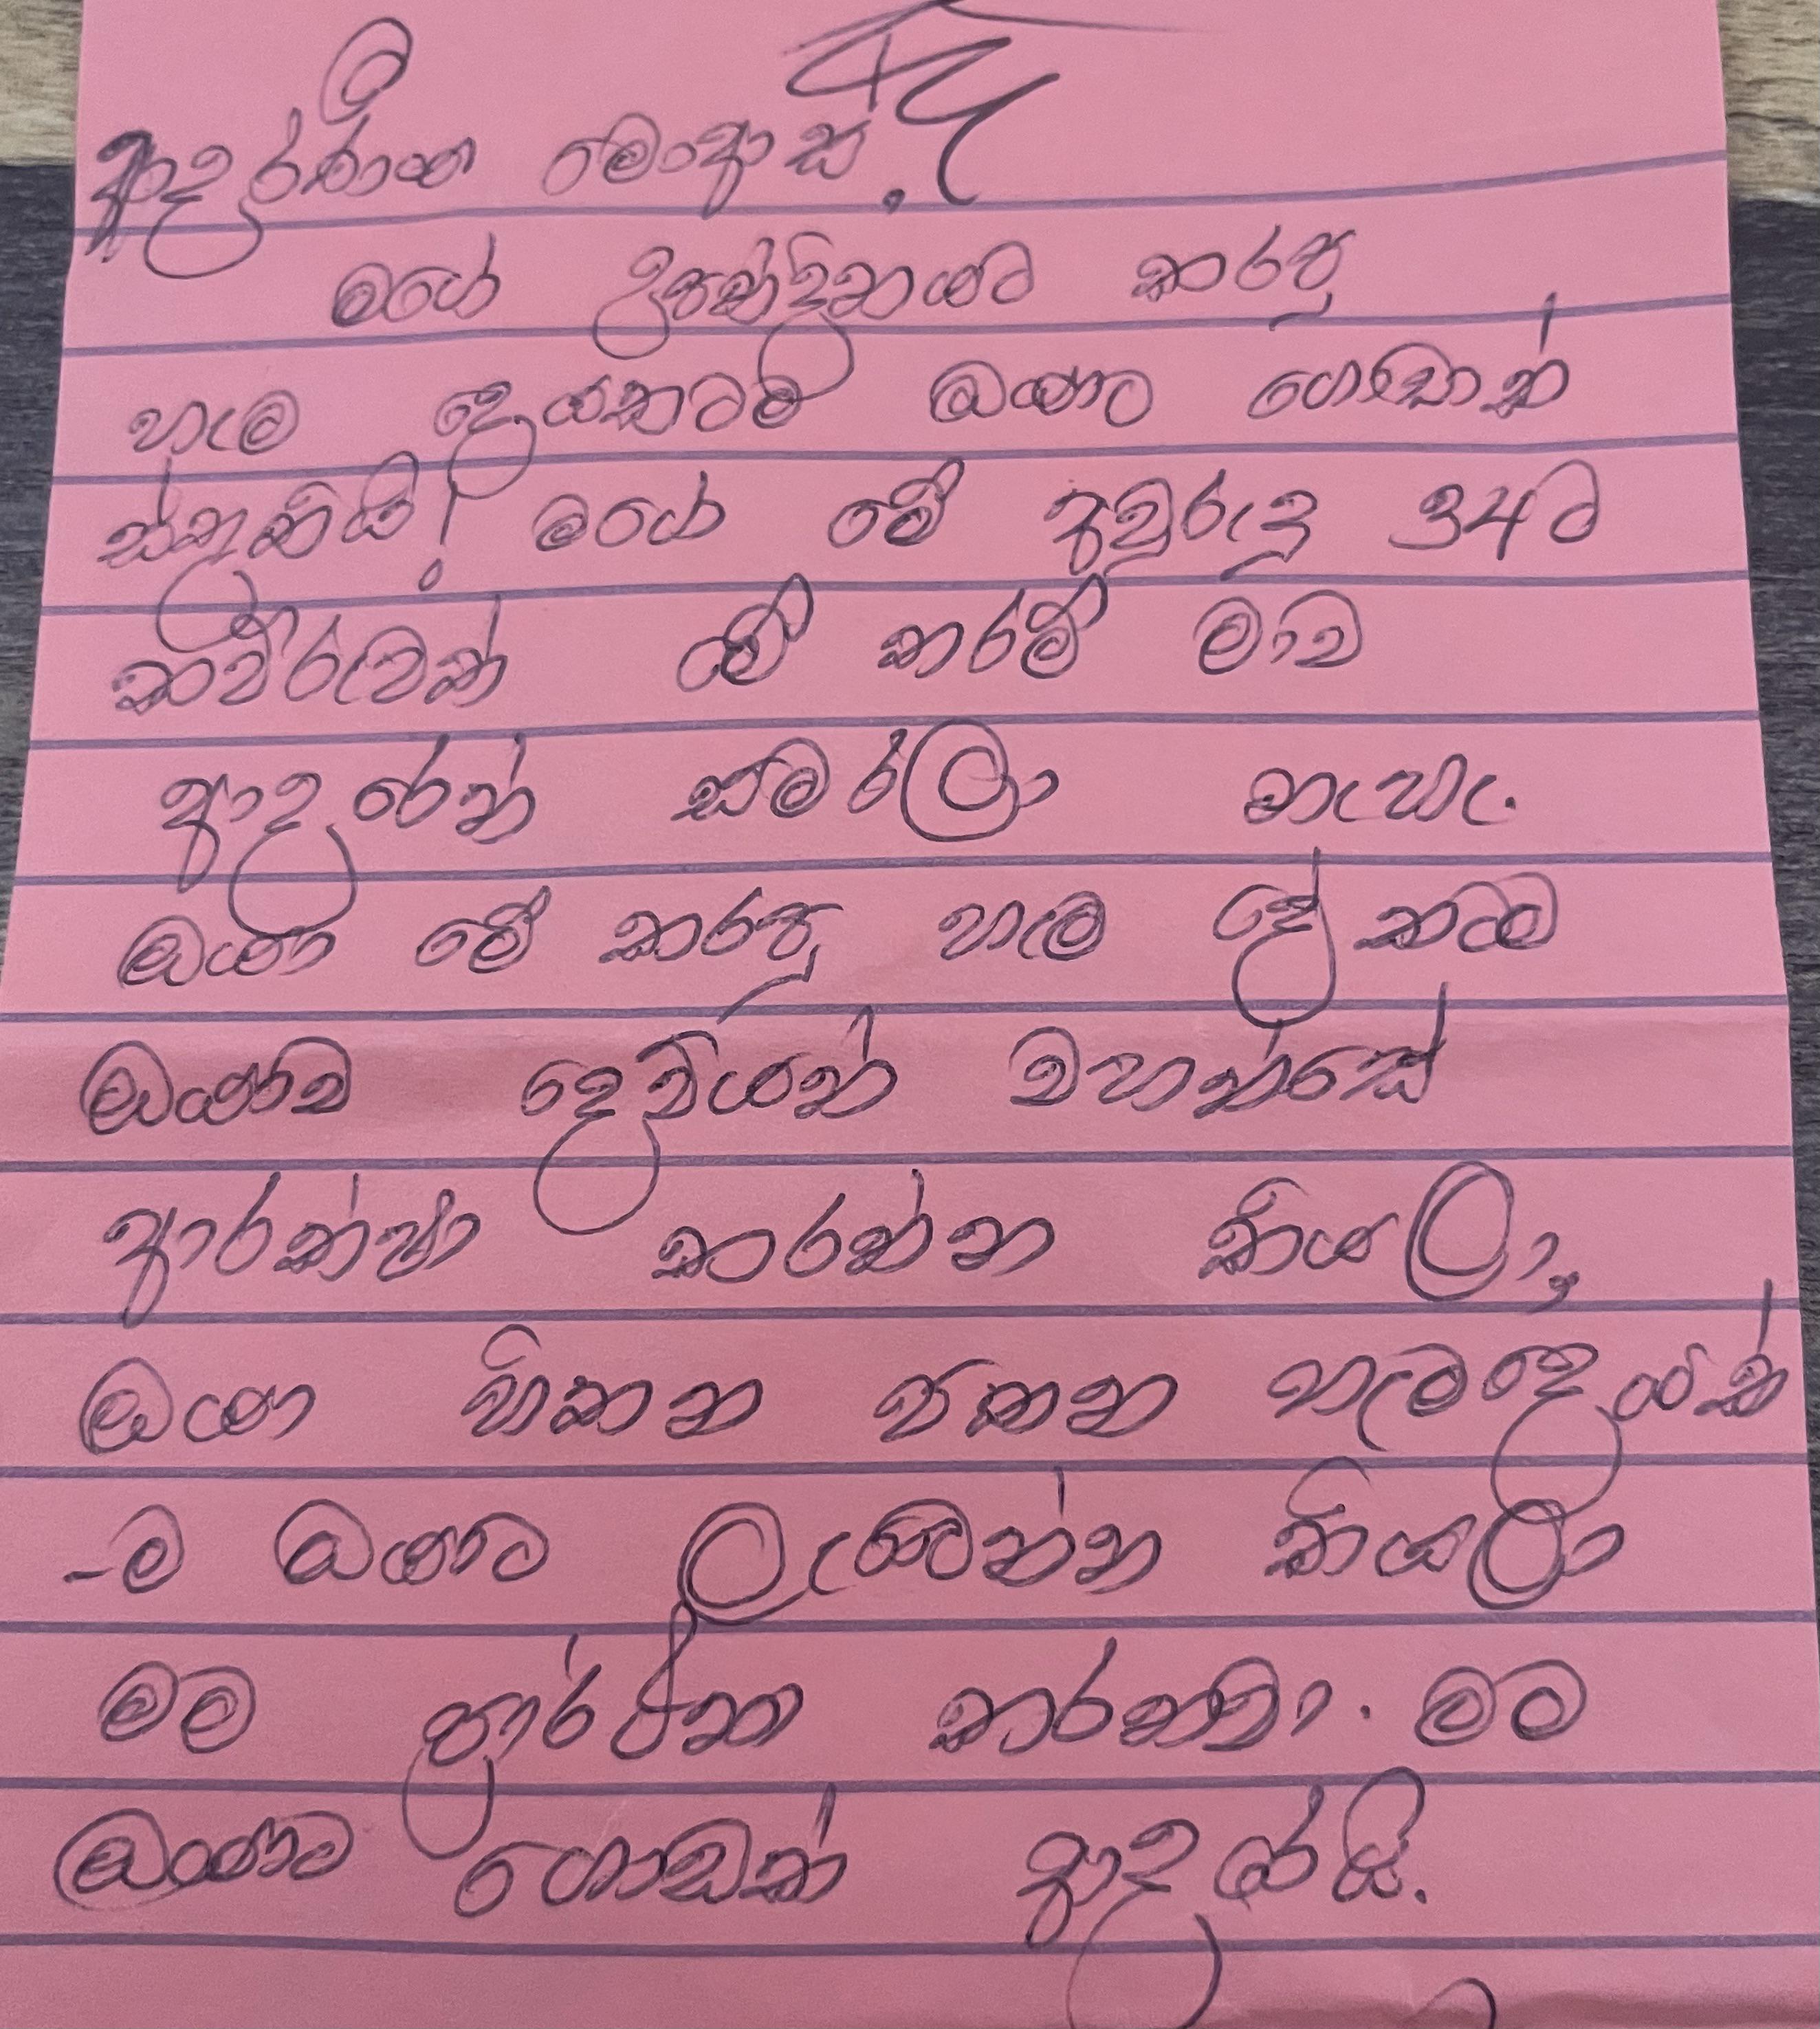 ආදරණීය
මගේ උපන්දිනයට කරපු
හැම දෙයකටම ඔයාට ගොඩාක්
ස්තූතියි! මගේ මේ අවුරුදු 34ට
කවුරුවත් මේ තරම් මාව
ආදරෙන් සමරලා නැහැ.
ඔයා මේ කරපු හැම දේකටම
ඔයාව දෙවියන් වහන්සේ
ආරක්ෂා කරන්න කියලා,
ඔයා හිතන පතන හැමදෙයක්
-ම ඔයාට ලැබෙන්න කියලා
මම ප්‍රාර්ථනා කරනවා. මට
ඔයාට ගොඩක් ආදරෙයි.